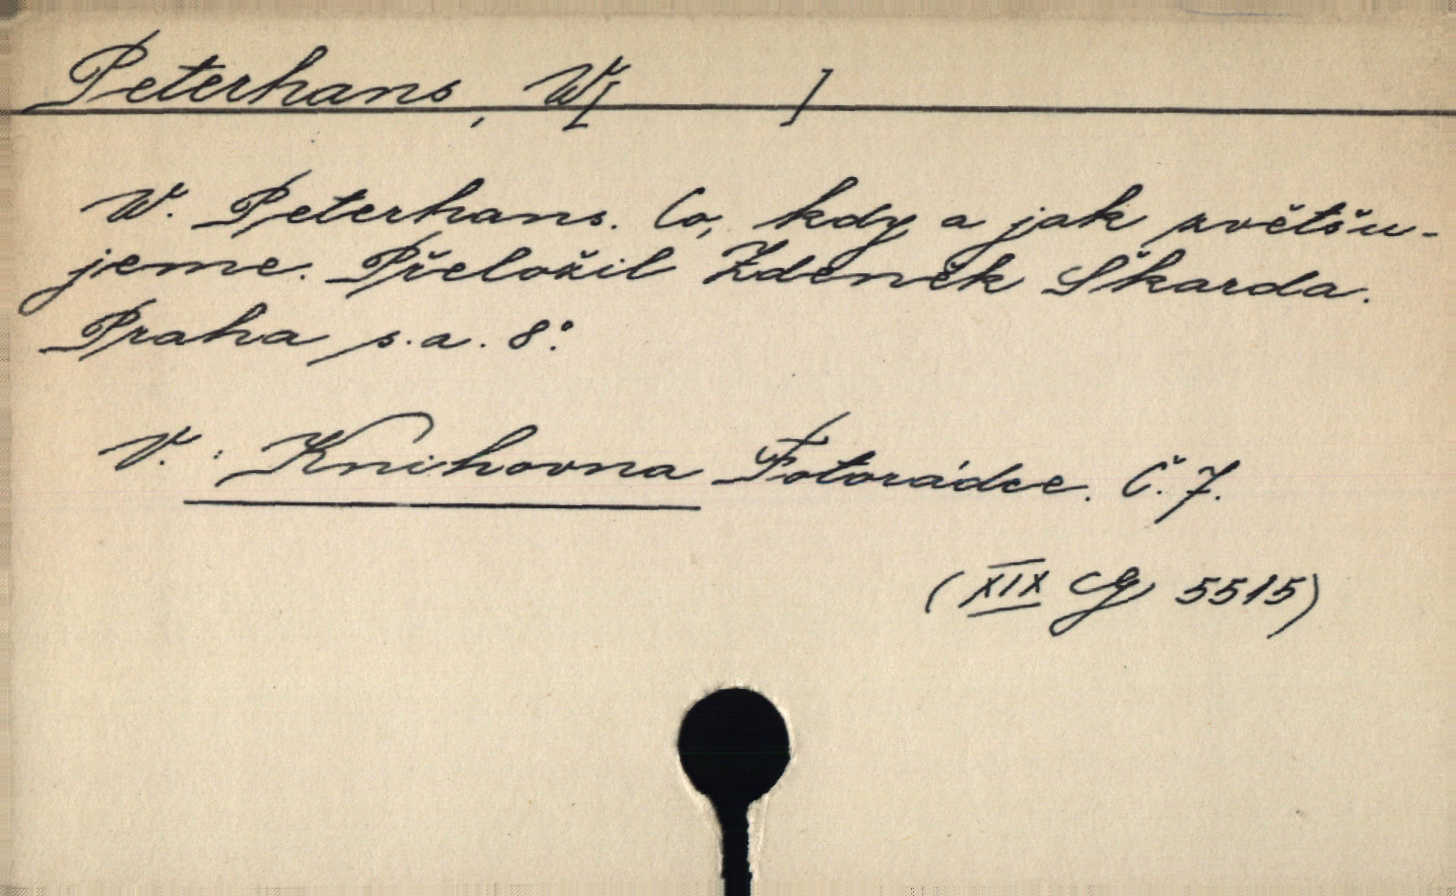 Peterhans, W[ ]
W. Peterhans. Co, kdy a jak zvětšu-
jeme. Přeložil Zdeněk Škarda.
Praha s.a. 8°.
V.: Knihovna Fotorádce. Č. 7.
(XIX G 5515)